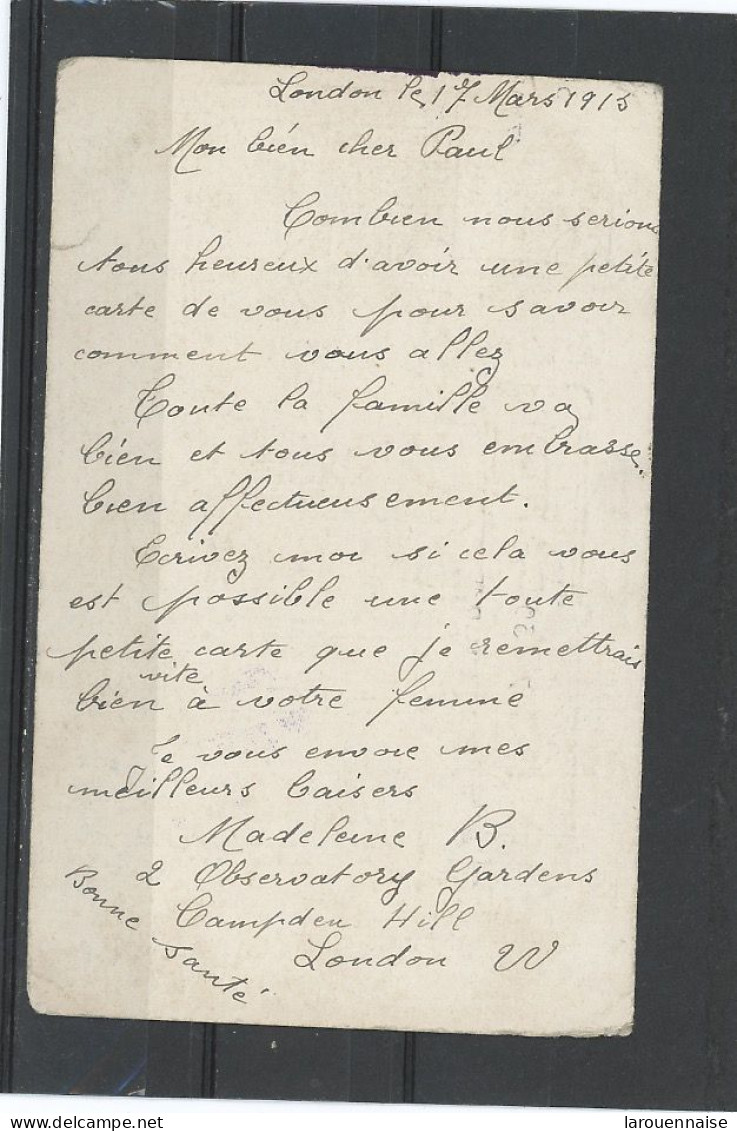 London le 17 Mars 1915
Mon bién cher Paul
Combien nous serions
tous heureux d'avoir une petite
carte de vous pour savoir
comment vous allez
Toute la famille va
bién et tous vous embrasse.
bien affectueusement.
Ecrivez moi si cela vous
est possible une toute
petite carte que je remettrais
vite
bién à votre femme
Je vous envoie mes
meilleurs baisers
Madeleine B.
2 Observatory Gardens
Campden Hill
London W
Bonne santé
delcampe.net
larouennaise